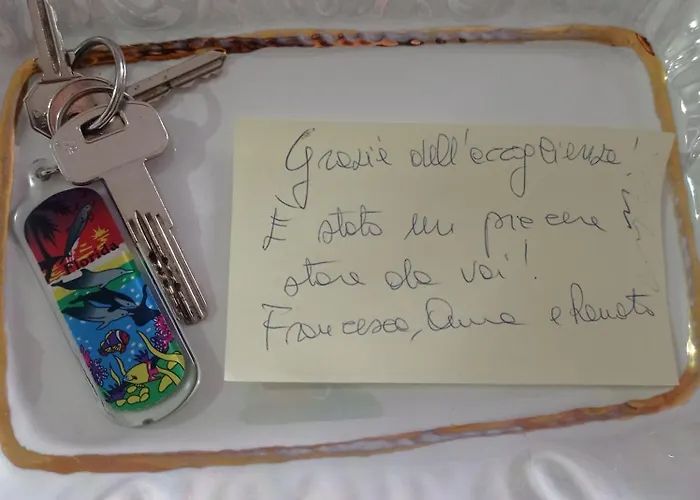 Florida
Grazie dell'accoglienza!
È stato un piacere
stare da voi!
Francesco, Anna e Renato